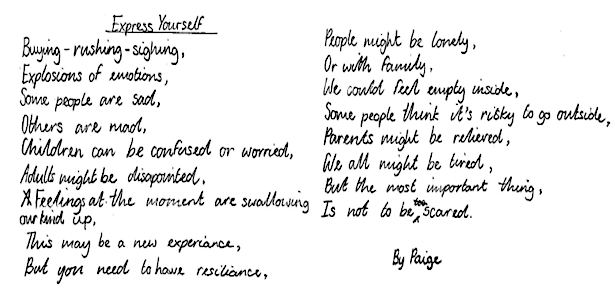 Express Yourself
Buying-rushing-sighing,
Explosions of emotions,
Some people are sad,
Others are mad,
Children can be confused or worried,
Adults might be disapointed,
Feelings at the moment are swallowing
our kind up,
This may be a new experiance,
But you need to have resiliance,
People might be lonely,
Or with family,
We could feel empty inside,
Some people think it's risky to go outside,
Parents might be relieved,
We all might be tired,
But the most important thing,
Is not to be too scared.
By Paige